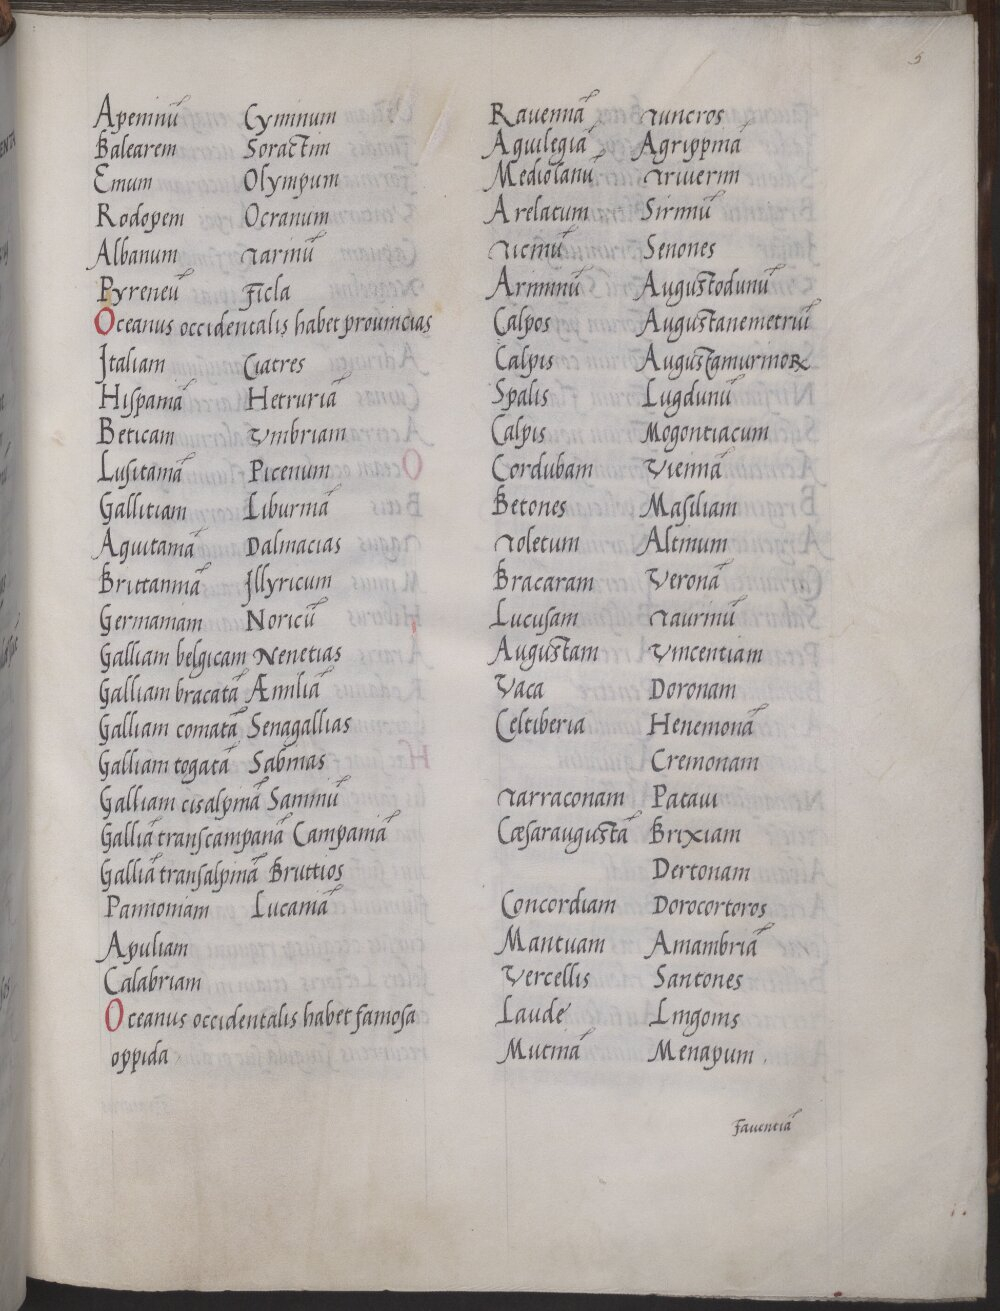 5
Apeninū Cyminum
Balearem Soractim
Emum Olympum
Rodopem Ocranum
Albanum Tarinū
Pyreneū Ficla
Oceanus occidentalis habet prouincias
Italiam Ciatres
Hispaniā Hetruriā
Beticam Vmbriam
Lusitaniā Picenum
Gallitiam Liburniā
Aquitaniā Dalmacias
Brittanniā Jllyricum
Germaniam Noricū
Galliam belgicam Nenetias
Galliam bracatā Æmiliā
Galliam comatā Senagallias
Galliam togatā Sabinas
Galliam cisalpinā Samniū
Galliā transcampanā Campaniā
Galliā transalpinā Bruttios
Pannoniam Lucaniā
Apuliam
Calabriam
Oceanus occidentalis habet famosa
oppida
Rauennā Tuncros
Aquilegiā Agrippinā
Mediolanū Triuerim
Arelatum Sirmiū
Ticinū Senones
Ariminū Augustodunū
Calpos Augustanemetrūi
Calpis Augustamurinoꝝ
Spalis Lugdunū
Calpis Mogontiacum
Cordubam Viennā
Betones Masiliam
Toletum Altinum
Bracaram Veronā
Lucusam Taurinū
Augustam Vincentiam
Vaca Doronam
Celtiberia Henemonā
Cremonam
Tarraconam Pataui
Cæsaraugustā Brixiam
Dertonam
Concordiam Dorocortoros
Mantuam Amambriā
Vercellis Santones
Laude Lingonis
Mutinā Menapum
Fauentiā